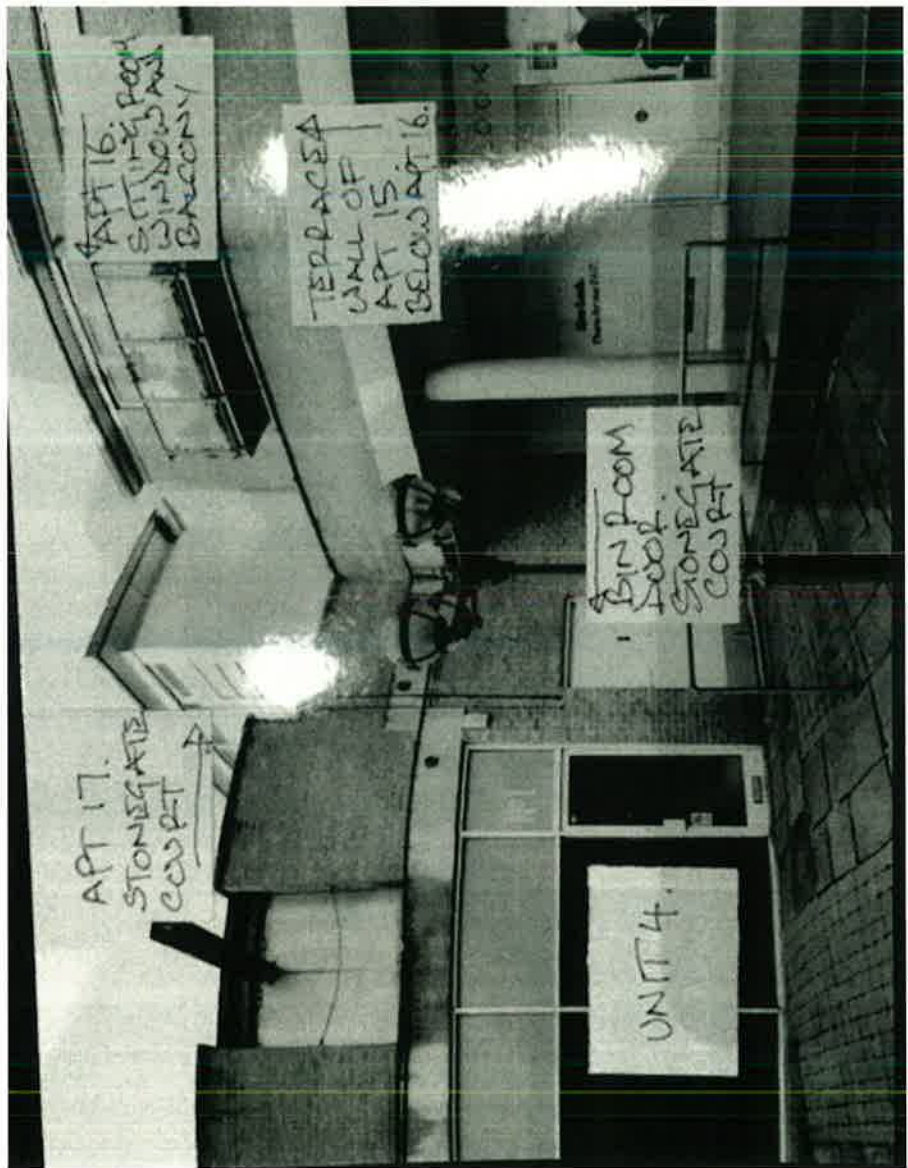 APT 17.
STONEGATE
COURT
APT 16.
SITTING ROOM
WINDOW AN
BALCONY
TERRACED
WALL OF
APT 15
BELOW APT 16.
BIN ROOM
DOOR.
STONEGATE
COURT
UNIT 4.